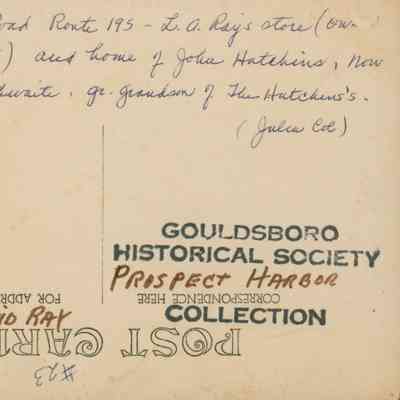 Road Route 195 - L.A. Ray's store (ow-
) and home of John Hutchins, now
hwaite, gr. grandson of The Hutchins's.
(Julia Col)
GOULDSBORO
HISTORICAL SOCIETY
PROSPECT HARBOR
CORRESPONDENCE HERE
FOR ADDR
COLLECTION
RAY
POST CAR
#23